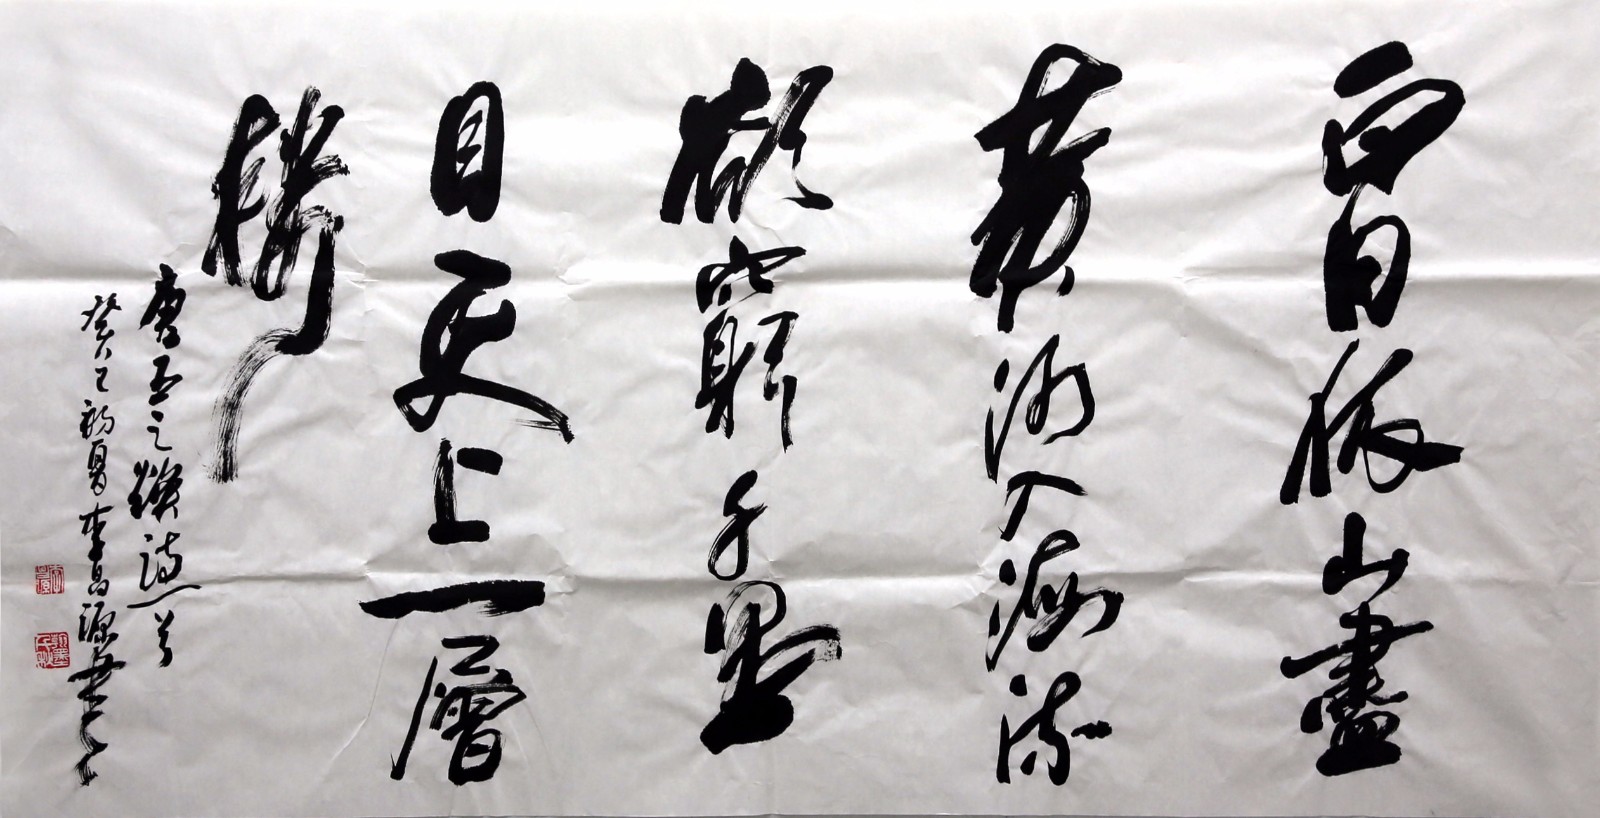 白日依山盡
黄河入海流
欲窮千里
目更上一層
樓
唐王之渙詩一首
癸巳初夏李昌源書